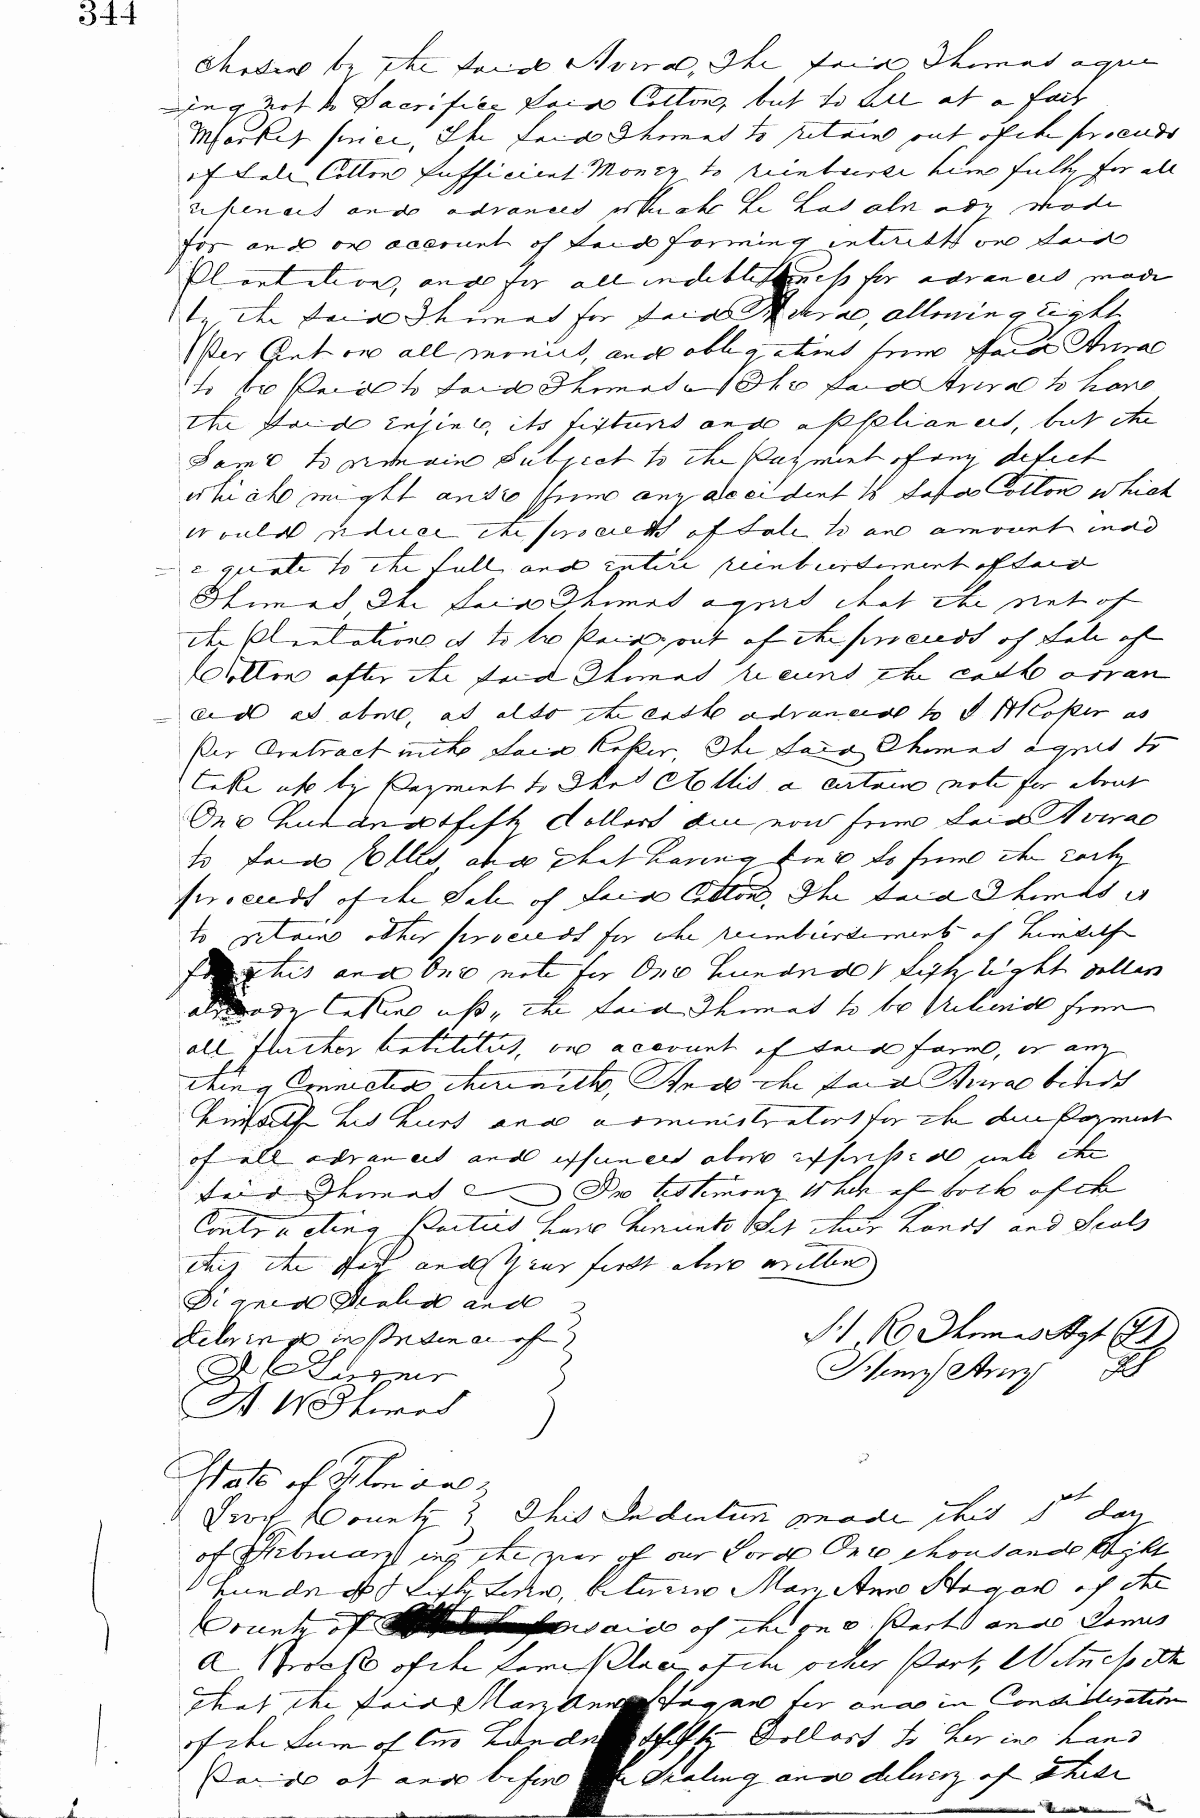 344
chosen by the said Avira, The said Thomas agree
=ing not to Sacrifice said Cotton, but to sell at a fair
Market price, The said Thomas to retain out of the proceeds
of sale Cotton sufficient Money to reimburse him fully for all
expences and advances which he has already made
for and on account of said farming interest on said
Plantation, and for all indebtedness for advances made
by the said Thomas for said Avira, allowing Eight
Per Cent on all monies, and obligations from said Avira
to be Paid to said Thomas The said Avira to have
the said Engine, its fixtures and appliances, but the
Same to remain Subject to the Payment of any defect
which might arise from any accident to said Cotton which
would reduce the proceeds of sale to an amount inad
=equate to the full and entire reimbursement of said
Thomas, The said Thomas agrees that the rent of
the Plantation is to be Paid out of the proceeds of sale of
Cotton after the said Thomas receives the cash advan
=ced as above, as also the cash advanced to J A Roper as
Per Contract with said Roper, The said Thomas agrees to
take up by Payment to Thos C Ellis a certain note for about
One hundred & fifty dollars due now from said Avira
to said Ellis, and that having done so from the early
proceeds of the Sale of said Cotton, The said Thomas is
to retain other proceeds for the reimbursement of himself
for this and One note for One hundred & sixty Eight dollars
already taken up, the said Thomas to be relieved from
all further liabilities, on account of said farm, or any
thing Connected therewith, And the said Avira binds
himself his heirs and administrators for the due Payment
of all advances and expences above expressed unto the
said Thomas In testimony whereof both of the
Contracting Parties have hereunto Set their hands and Seals
this the day and Year first above written
Signed Sealed and
delivered in Presence of
H R Thomas Agt LS
Henry Avery LS
A W Thomas
State of Florida
Levy County } This Indenture made this 1st day
of February in the year of our Lord One thousand Eight
hundred & Sixty Seven, between Mary Ann Hogan of the
County of aforesaid of the one Part and James
A Brock of the same Place of the other Part, Witnesseth
that the said Mary Ann Hogan for and in Consideration
of the Sum of two hundred & fifty Dollars to her in hand
Paid at and before the Sealing and delivery of These